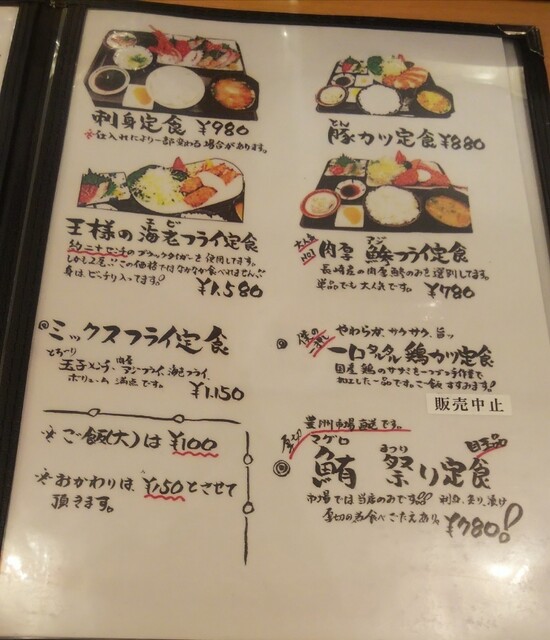 刺身定食 ¥980
※仕入れにより一部変わる場合があります。
王様の海老フライ定食
エビ
約三十センチのブラックタイガーを使用してます。
しかも2尾!!この価格ではなかなか食べれません!!
身は、ビッチリ入ってます!
¥1,580
◎ミックスフライ定食
とろ〜り
玉子メンチ、肉厚アジフライ、海老フライ
ボリューム満点です。
¥1,150
※ご飯(大)は ¥100
※おかわりは、¥150とさせて
頂きます。
とん
豚カツ定食 ¥880
大人気
No1
アジ
肉厚 鯵フライ定食
長崎産の肉厚鯵のみを選別してます。
単品でも大人気です。 ¥780
やわらか、サクサク、旨ッ
一口タルタル鶏カツ定食
国産鶏のササミを一つづつ手作業で
加工した一品です。ご飯すすみます!
販売中止
豊洲市場直送です。
厚切
マグロ
まつり
目玉品
◎鮪 祭り定食
市場では当店のみです!! 刺身、炙り、漬け
厚切の為食べごたえあり。 ¥780!